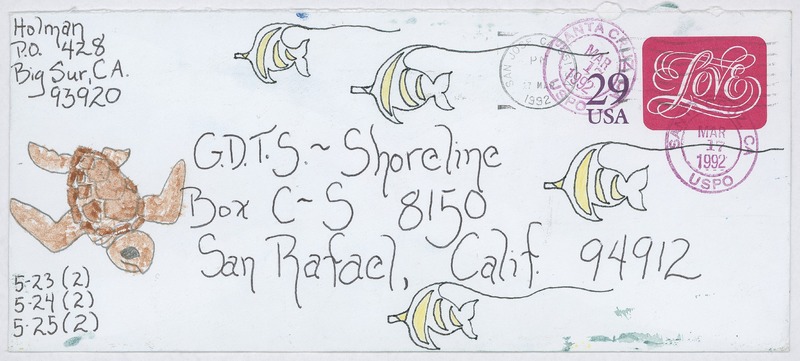 Holman
P.O. 428
Big Sur, CA.
93920
G.D.T.S. ~ Shoreline
Box C-S 8150
San Rafael, Calif. 94912
5-23 (2)
5-24 (2)
5-25 (2)
SAN JOSE
PM
1992
SANTA CRUZ
MAR
17
1992
USPO
29
USA
LOVE
CA
MAR
17
1992
USPO